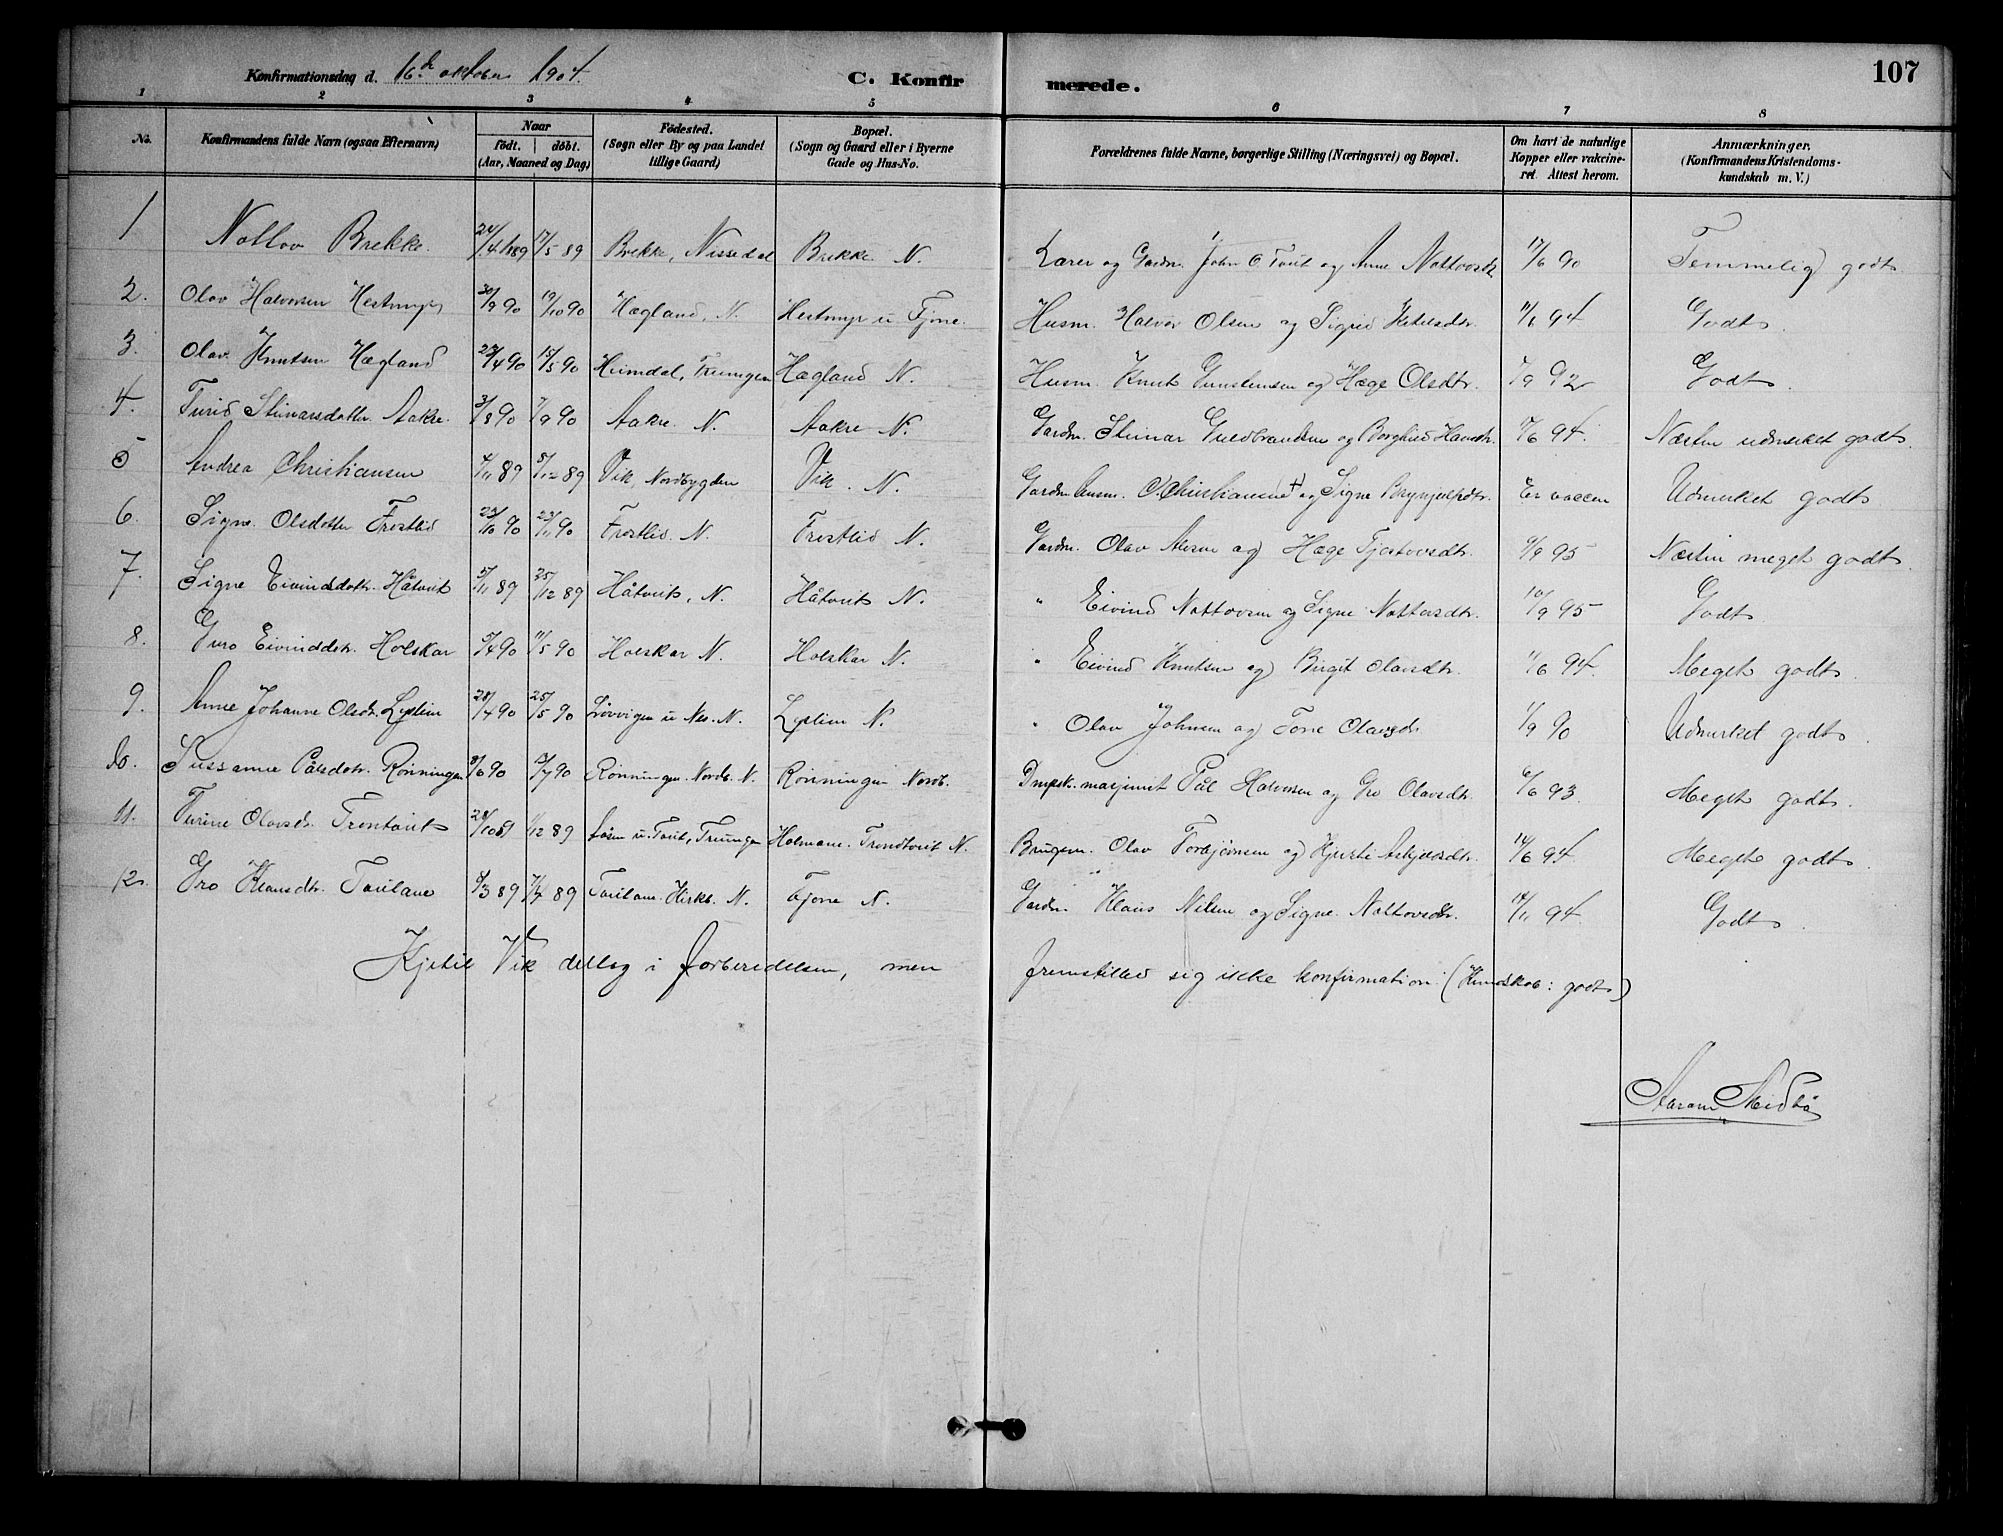 107
Konfirmationsdag d. 16de oktober 1904.
C. Konfirmerede.
1 2 3 4 5 6 7 8
No.
Konfirmandens fulde Navn (ogsaa Efternavn)
Naar
født. døbt.
(Aar, Maaned og Dag)
Fødested.
(Sogn eller By og paa Landet
tillige Gaard)
Bopæl.
(Sogn og Gaard eller i Byerne
Gade og Hus-No.
Forældrenes fulde Navne, borgerlige Stilling (Næringsvei) og Bopæl.
Om havt de naturlige
Kopper eller vakcine-
ret. Attest herom.
Anmærkninger.
(Konfirmandens Kristendoms-
kundskab m. V.)
1 Nottov Brekke. 24/4 1889 17/5 89 Brekke, Nissedal Brekke N. Lærer og Gardm. John O Tveit og Anne Nottovsdtr 17/6 90 Temmelig godt
2. Olav Halvorsen Hestmyr 30/9 90 19/10 90 Hægland, N. Hestmyr u. Fjone. Husm. Halvor Olsen og Sigrid Ketilsdtr. 11/6 94 Godt
3. Olav Knutsen Hægland 23/4 90 15/5 90 Heimdal, Treungen Hægland N. Husm. Knut Gunstensen og Hæge Olsdtr. 7/9 92 Godt
4. Turid Steinarsdotter Aakre. 3/8 90 7/9 90 Aakre. N. Aakre N. Gardm. Steinar Guldbrandsen og Borghild Hansdtr. 17/6 94. Næsten udmerket godt
5 Andrea Christiansen 4/11 89 8/12 89 Vik, Nordbygden Vik. N. Gardm. O. Christiansen + og Signe Brynjulfsdtr. Er vaccin Udmerket godt
6. Signe Olsdotter Frostlid 23/10 90 23/11 90 Frostlid. N. Frostlid N. Gardm. Olav Olsen og Hæge Tjostovsdtr. 9/9 95 Næsten meget godt
7. Signe Eivindsdotr. Håtveit 5/11 89 25/12 89 Håtveit, N. Håtveit N. " Eivind Nottovsen og Signe Nottovsdtr. 10/9 95 Godt
8. Guro Eivinddtr. Holskar 5/4 90 11/5 90 Holskar N. Holskar N. " Eivind Knutsen og Birgit Olavsdtr. 11/6 94. Meget godt
9. Anne Johanne Olsdr. Lystim 28/4 90 25/5 90 Løvvigen u Nes. N. Lystim N. " Olav Johnsen og Tone Olavsdr 1/9 90 Udmerket godt
10. Sussanne Pålsdotr. Rønningen 8/6 90 13/7 90 Rønningen. Nordb. N. Rønningen Nordb. Dmpsk. masjinist Pål Halvorsen og Gro Olavsdtr. 6/6 93. Meget godt
11. Turine Olavsdr. Trontveit 28/10 89 1/12 89 u. Tveit, Treungen Holmane. Trondtveit N. Brugsm. Olav Torbjørnsen og Kjersti Askjelsdtr. 14/6 94. Meget godt
12. Gro Klausdtr. Tveitane 8/3 89 7/4 89 Tveitane. Kirkb. N. Fjone N. Gardm. Klaus Nilsen og Signe Nottovsdtr. 14/11 94 Godt
Kjetil Vik deltog i forberedelsen, men fremstilled sig ikke konfirmation (Kundskab: godt)
Aaram Meidbø